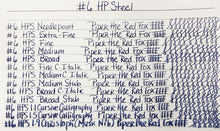 #6 HP Steel
#6 HPS Needlepoint Piper the Red Fox llll
#6 HPS Extra-Fine Piper the Red Fox llll
#6 HPS Fine Piper the Red Fox llll
#6 HPS Medium Piper the Red Fox llll
#6 HPS Broad Piper the Red Fox llll
#6 HPS Fine C. Italic Piper the Red Fox llll
#6 HPS Medium C. Italic Piper the Red Fox llll
#6 HPS Medium Stub Piper the Red Fox llll
#6 HPS Broad C. Italic Piper the Red Fox llll
#6 HPS Broad Stub Piper the Red Fox llll
#6 HPS 1.1 Cursive Calligraphy Piper the Red Fox llll
#6 HPS 1.5 Cursive Calligraphy Piper the Red Fox llll
#6 HPS 1.9 (Music Nib) Piper the Red Fox llll